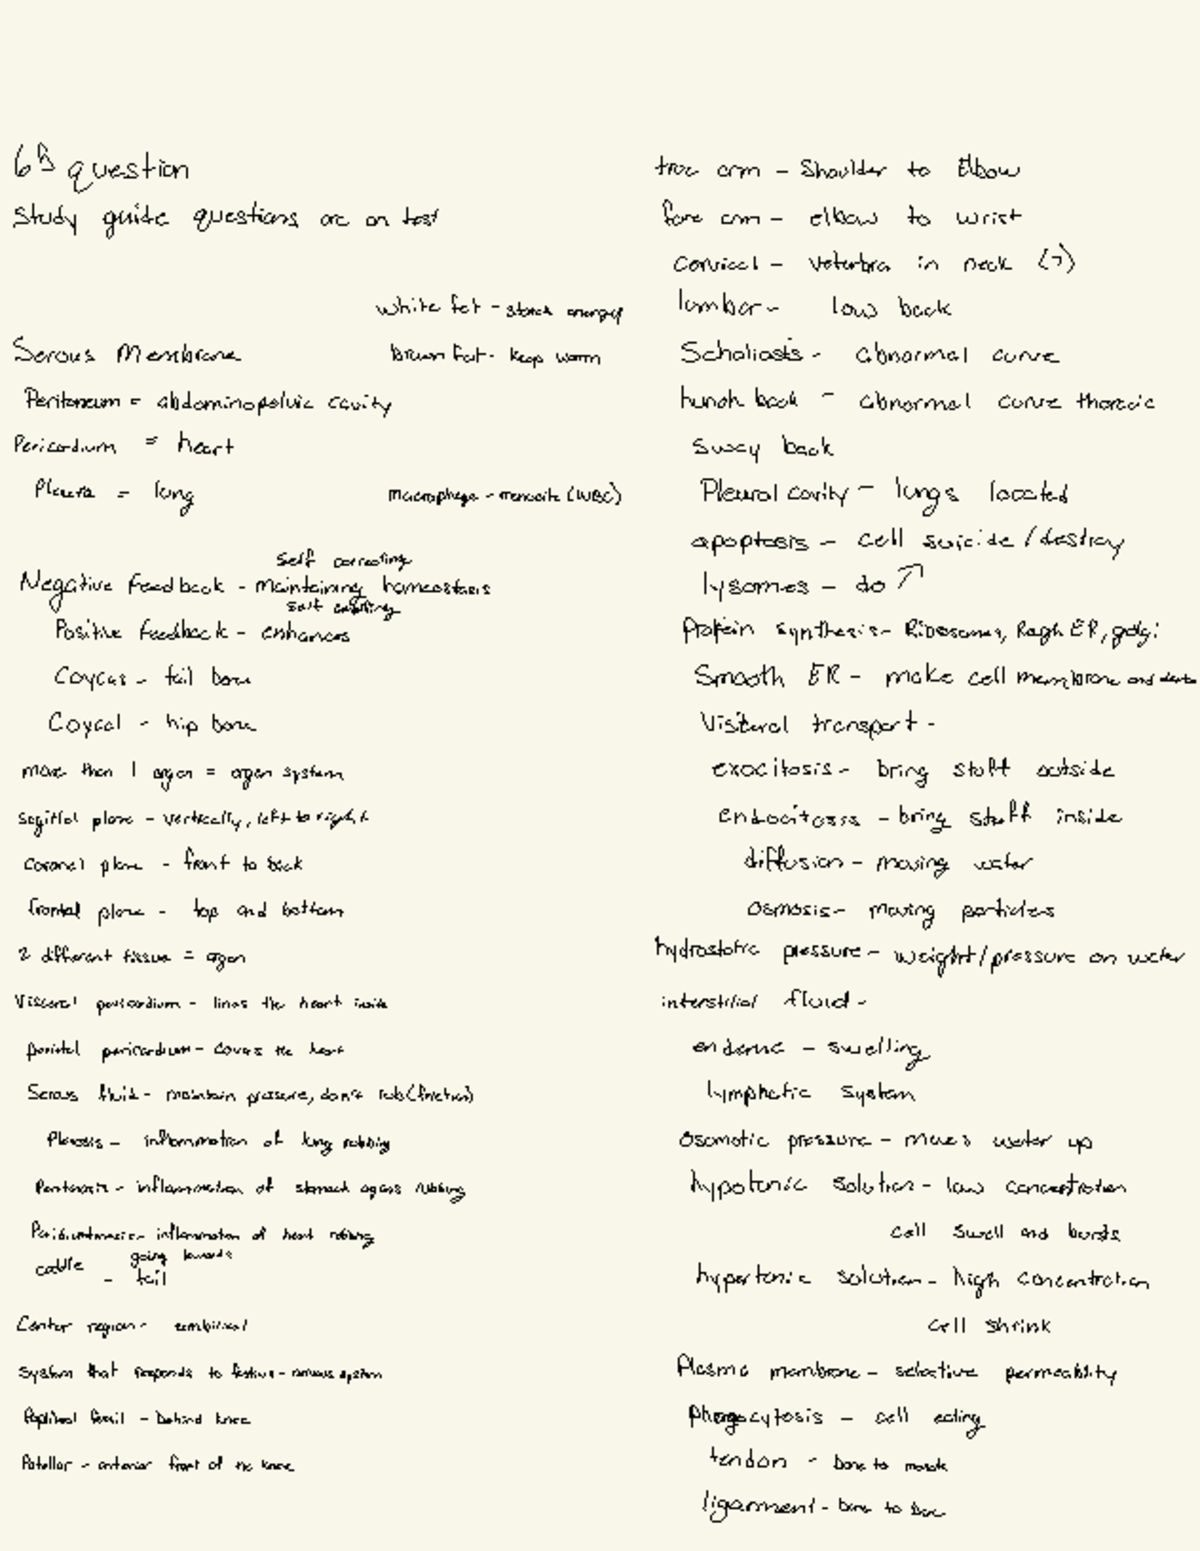 question
Study guide questions are on test
white fat - store energy
Serous Membrane
brown fat - keep warm
Peritoneum = abdominopelvic cavity
Pericardium = heart
Pleura = lung
macrophage - monocite (WBC)
Self correcting
Negative feedback - maintaining homeostasis
Positive feedback - enhances
Coycas - tail bone
Coycal - hip bone
more than 1 organ = organ system
sagittal plane - vertically, left to right
coronal plane - front to back
frontal plane - top and bottom
2 different tissue = organ
Visceral pericardium - lines the heart inside
parietal pericardium - covers the heart
Serous fluid - maintain pressure, don't rub (friction)
inflammation of lung rubbing
inflammation of stomach organs rubbing
inflammation of heart rubbing
going towards
- tail
Center region - umbilical
System that responds to - nervous system
- behind knee
Patellar - anterior front of the knee
true arm - Shoulder to Elbow
fore arm - elbow to wrist
Cervical - veterbra in neck (7)
lumbar - low back
Scholiosis - abnormal curve
hunch back - abnormal curve thoracic
sway back
Pleural cavity - lungs located
apoptosis - cell suicide / destroy
lysomes - do ↗
Protein synthesis - Ribosomes, Rough ER, golgi
Smooth ER - make cell membrane and
transport -
exocitosis - bring stuff outside
endocitosis - bring stuff inside
diffusion - moving water
Osmosis - moving particles
hydrostatic pressure - weight/pressure on water
interstitial fluid -
endema - swelling
lymphatic system
Osomotic pressure - moves water up
hypotonic solution - low concentration
cell swell and bursts
hypertonic solution - high concentration
cell shrink
Plasma membrane - selective permeability
Phagocytosis - cell eating
tendon - bone to muscle
ligamment - bone to bone